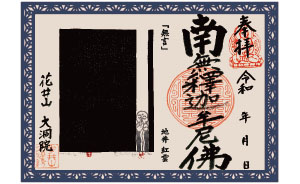 奉拝
令和 年 月 日
南無釋迦牟尼佛
「無言」
地井 紅雲
花井山 大洞院